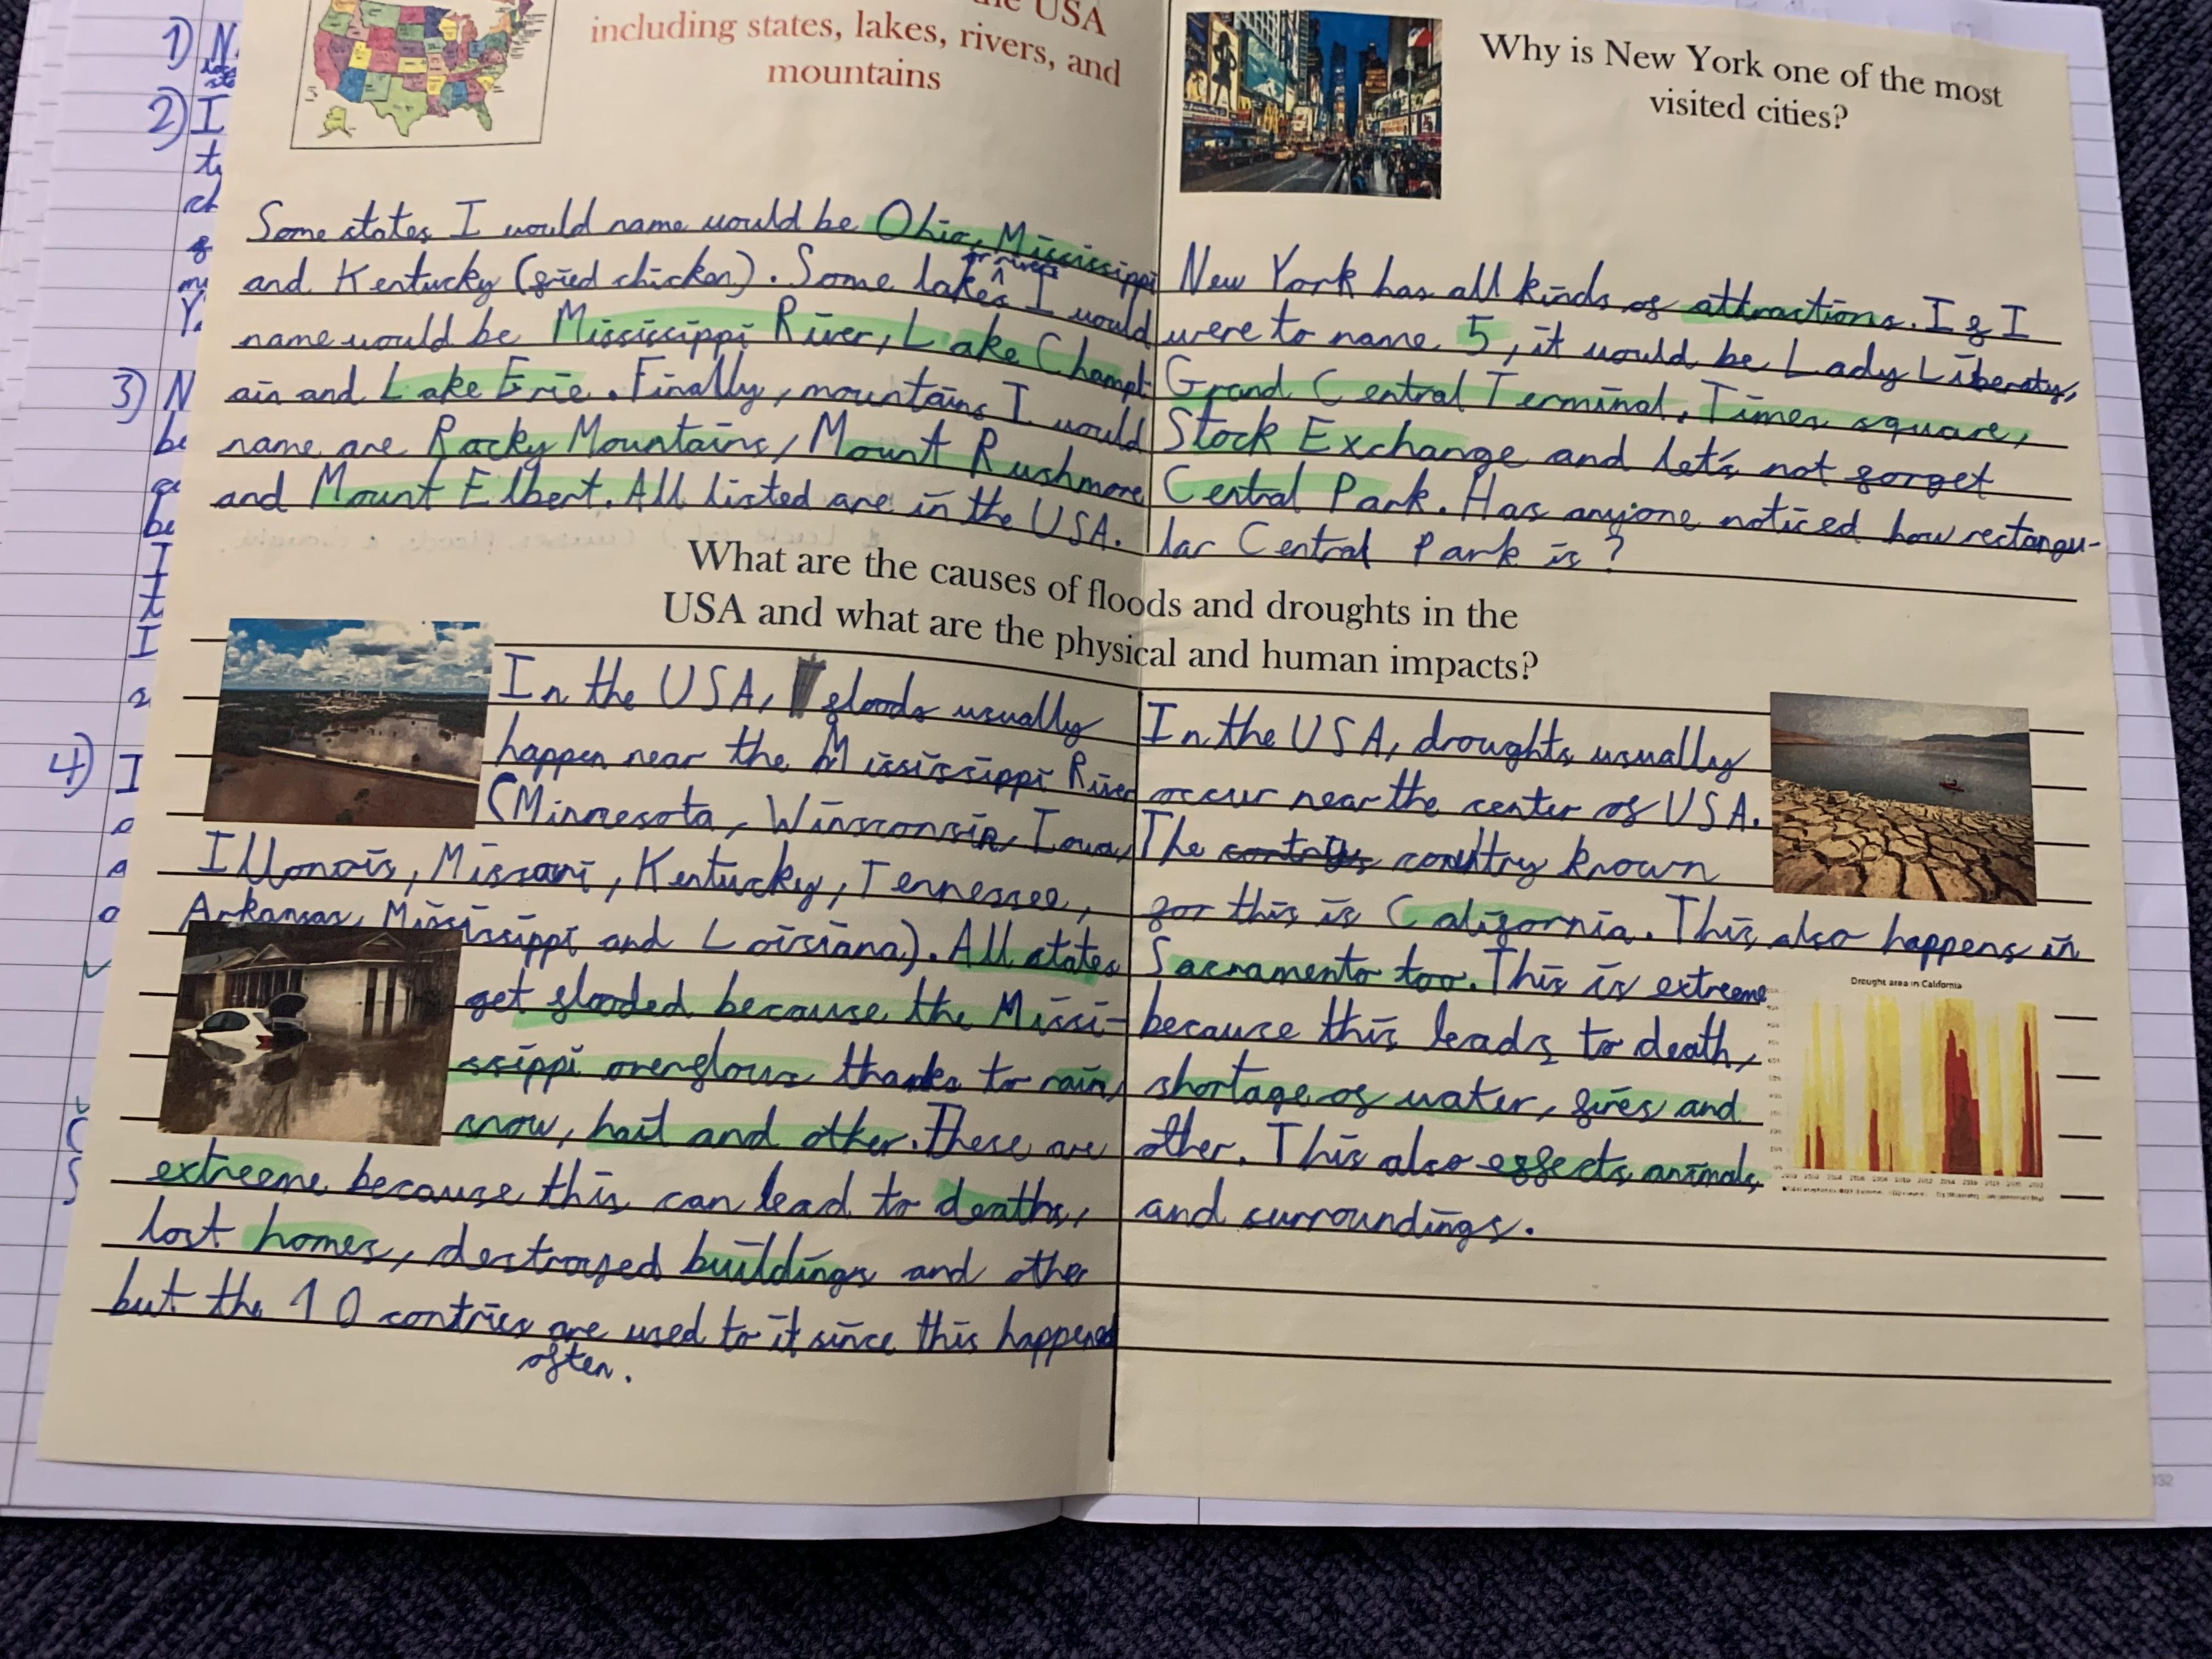 1) N
2) I
3) N
4) I
USA
including states, lakes, rivers, and
mountains
Some states I would name would be Ohio, Mississippi
and Kentucky (fried chicken). Some lakes or rivers I would
name would be Mississippi River, Lake Champl
ain and Lake Erie. Finally, mountains I would
name are Rocky Mountains, Mount Rushmore
and Mount Elbert. All listed are in the USA.
Why is New York one of the most
visited cities?
New York has all kinds of attractions. If I
were to name 5, it would be Lady Liberaty,
Grand Central Terminal, Times square,
Stock Exchange and let's not forget
Central Park. Has anyone noticed how rectangu-
lar Central Park is?
What are the causes of floods and droughts in the
USA and what are the physical and human impacts?
In the USA, floods usually
happen near the Mississippi River
(Minnesota, Winsconsin, Iowa,
Illonois, Missouri, Kentucky, Tennessee,
Arkansas, Mississippi and Loisiana). All states
get flooded because the Missi-
ssippi overflows thanks to rain,
snow, hail and other. These are
extreeme because this can lead to deaths,
lost homes, destroyed buildings and other
but the 10 contries are used to it since this happened
often.
In the USA, droughts usually
occur near the center of USA.
The country known
for this is California. This also happens in
Sacramento too. This is extreme
because this leads to death,
shortage of water, fires and
other. This also effects animals
and surroundings.
Drought area in California